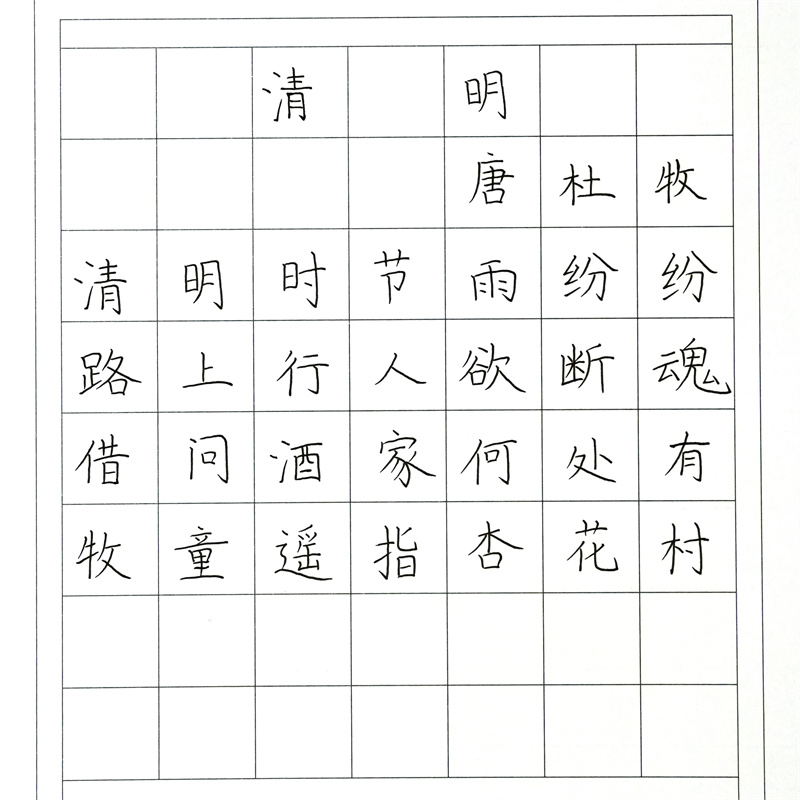 清明
唐杜牧
清明时节雨纷纷
路上行人欲断魂
借问酒家何处有
牧童遥指杏花村